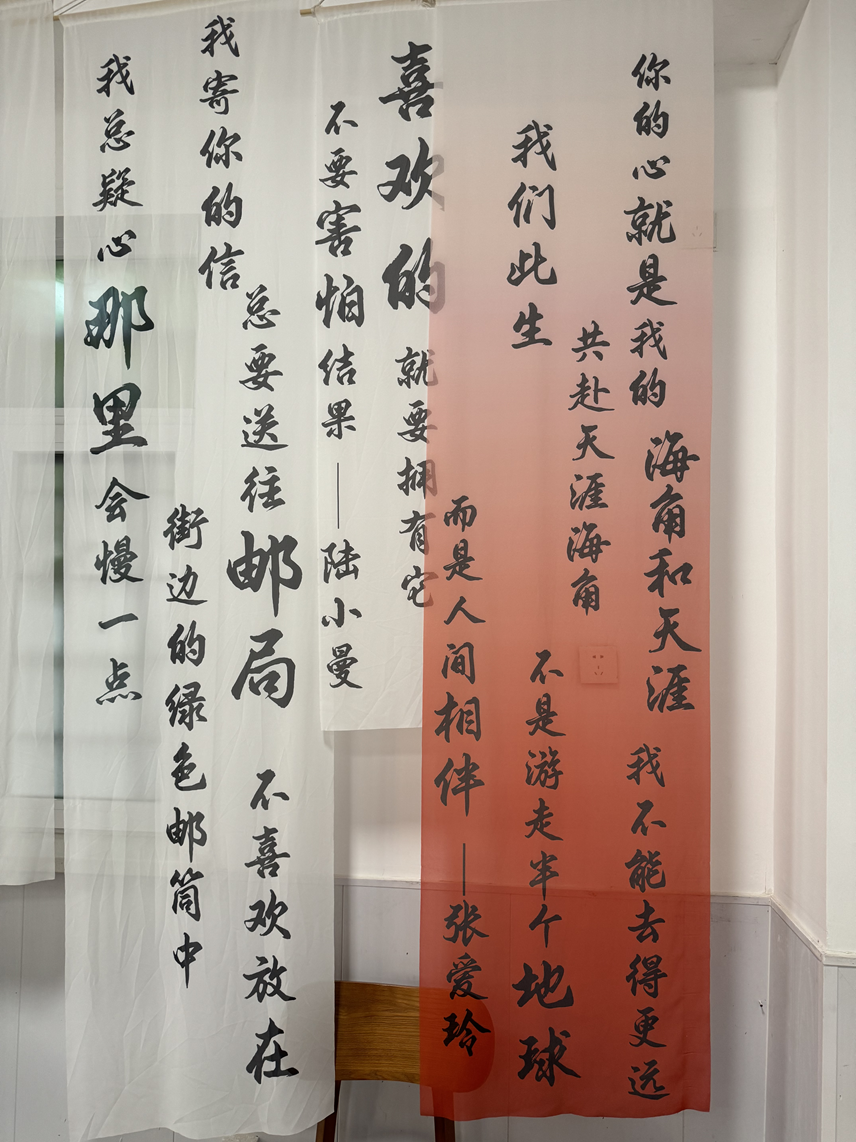 你的心就是我的
海角和天涯
我不能去得更远
我们此生
共赴天涯海角
不是游走半个地球
而是人间相伴 —张爱玲
喜欢的
就要拥有它
不要害怕结果 —陆小曼
我寄你的信
总要送往邮局
不喜欢放在
街边的绿色邮筒中
我总疑心那里会慢一点